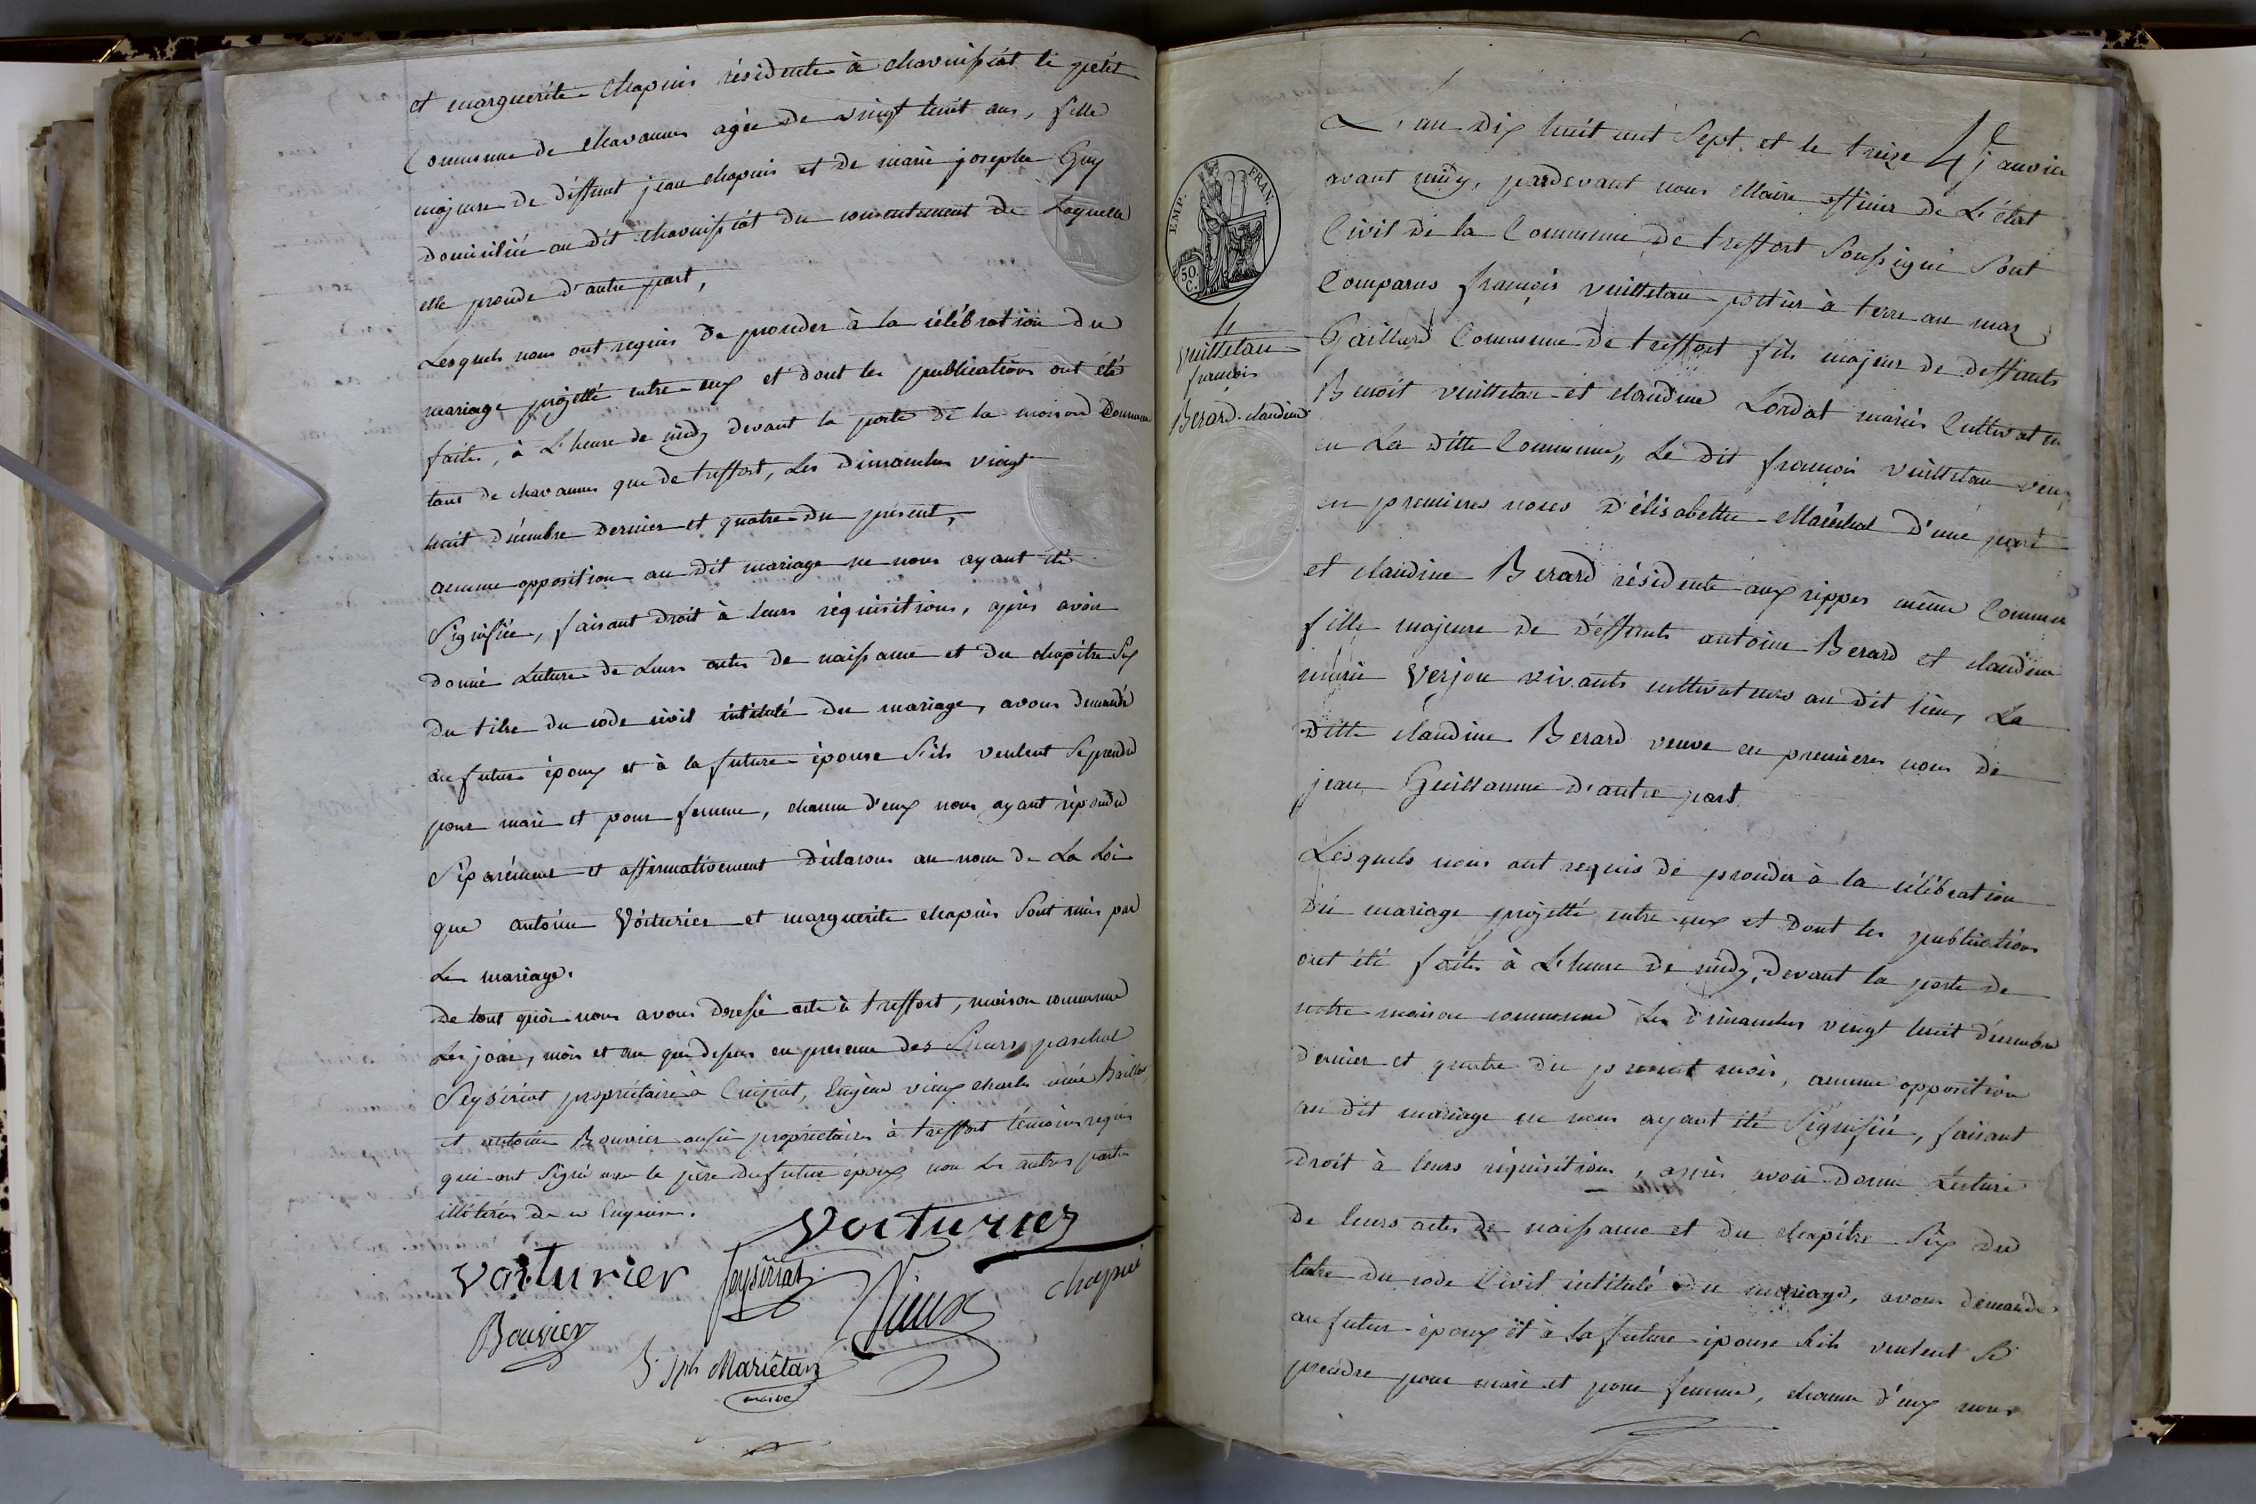 et marguérite Chapuis résidente à chavuissiat le petit
Commune de Chavannes agée de vingt huit ans, fille
majeure de deffunt jean chapuis et de marie josephe Guy
domiciliée au dit chavuissiat du consentement de Laquelle
elle procede d'autre part,
Lesquels nous ont requis de proceder à la célébration du
mariage projetté entre eux et dont les publications ont été
faites, à L'heure de midy devant la porte de la maison Commune
tant de chavannes que de treffort, les Dimanches vingt
huit décembre dernier et quatre du present,
aucune opposition au dit mariage ne nous ayant été
Signifiée, faisant droit à leurs réquisitions, après avoir
donné Lecture de Leurs actes de naissance et du chapitre Six
du titre du code civil intitulé du mariage, avons demandé
au futur époux et à la future épouse S'ils veulent Se prendre
pour mari et pour femme, chacun d'eux nous ayant répondu
Séparément et affirmativement déclarons au nom de La Loi
que antoine Voiturier et marguerite chapuis Sont unis par
Le mariage.
De tout quoi nous avons dressé acte à treffort, maison commune
Les jour, mois et an que dessus en presence des Sieurs paschal
Seysériat propriétaire à Cuisiat, Eugène vieux charles aimé
et antoine Bouvier aussi propriétaires à treffort témoins requis
qui ont Signé avec le père du futur époux non les autres parties
illiterées de ce Enquises.
Voiturier
Voiturier Seysériat Vieux chapuis
Bouvier
Jph Mariétan
maire
EMP. FRAN.
50 C.
4
Vuittetan
francois
Berard claudine
4e
L'an Dix huit cent Sept. et le treize janvier
avant midy, pardevant nous Maire officier de L'état
Civil de la Commune de treffort Soussigné Sont
Comparus françois vuittetan pottier à terre au mas
Gaillard Commune de treffort fils majeur de deffunts
Benoit vuittetan et claudine Lordat mariés Cultivateurs
en La ditte Commune, Le dit françois vuittetan veuf
en premieres noces d'élisabethe Maréchal d'une part
et claudine Berard résidente aux rippes même Commune
fille majeure de deffunts antoine Berard et claudine
marie Verjon vivants cultivateurs au dit lieu, La
Ditte claudine Berard veuve en premieres noces de
jean Guillaume d'autre part.
Lesquels nous ont requis de proceder à la célébration
du mariage projetté entre eux et dont les publications
ont été faites à L'heure de midy, devant la porte de
notre maison commune Les dimanches vingt huit décembre
dernier et quatre du present mois, aucune opposition
au dit mariage ne nous ayant été Signifiée, faisant
droit à leurs réquisitions, après avoir donné Lecture
de leurs actes de naissance et du chapitre Six du
titre du code Civil intitulé du mariage, avons demandé
au futur époux et à la future épouse S'ils veulent Se
prendre pour mari et pour femme, chacun d'eux nous